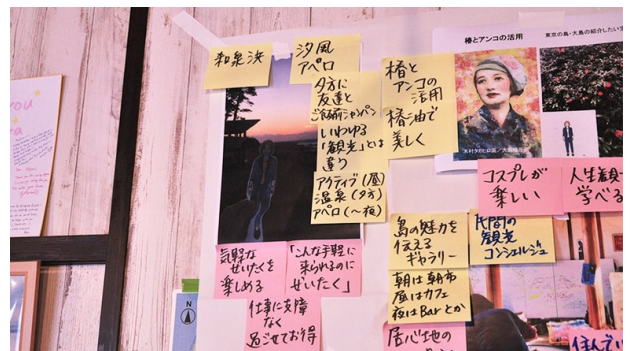 和泉浜
汐風
アペロ
夕方に
友達と
ご飯前シャンパン
いわゆる
「観光」とは
違う
アクティブ(昼)
温泉(夕方)
アペロ(〜夜)
椿と
アンコの
活用
椿油で
美しく
椿とアンコの活用
東京の島・大島の紹介したい
コスプレが
楽しい
人生観
学べる
島の魅力を
伝える
ギャラリー
民間の
観光
コンシェルジュ
朝は朝市
昼はカフェ
夜はBarとか
居心地の
気軽な
ぜいたくを
楽しめる
「こんな手軽に
来られるのに
ぜいたく」
仕事に支障
なく
過ごせてお得
住んでい
you
N